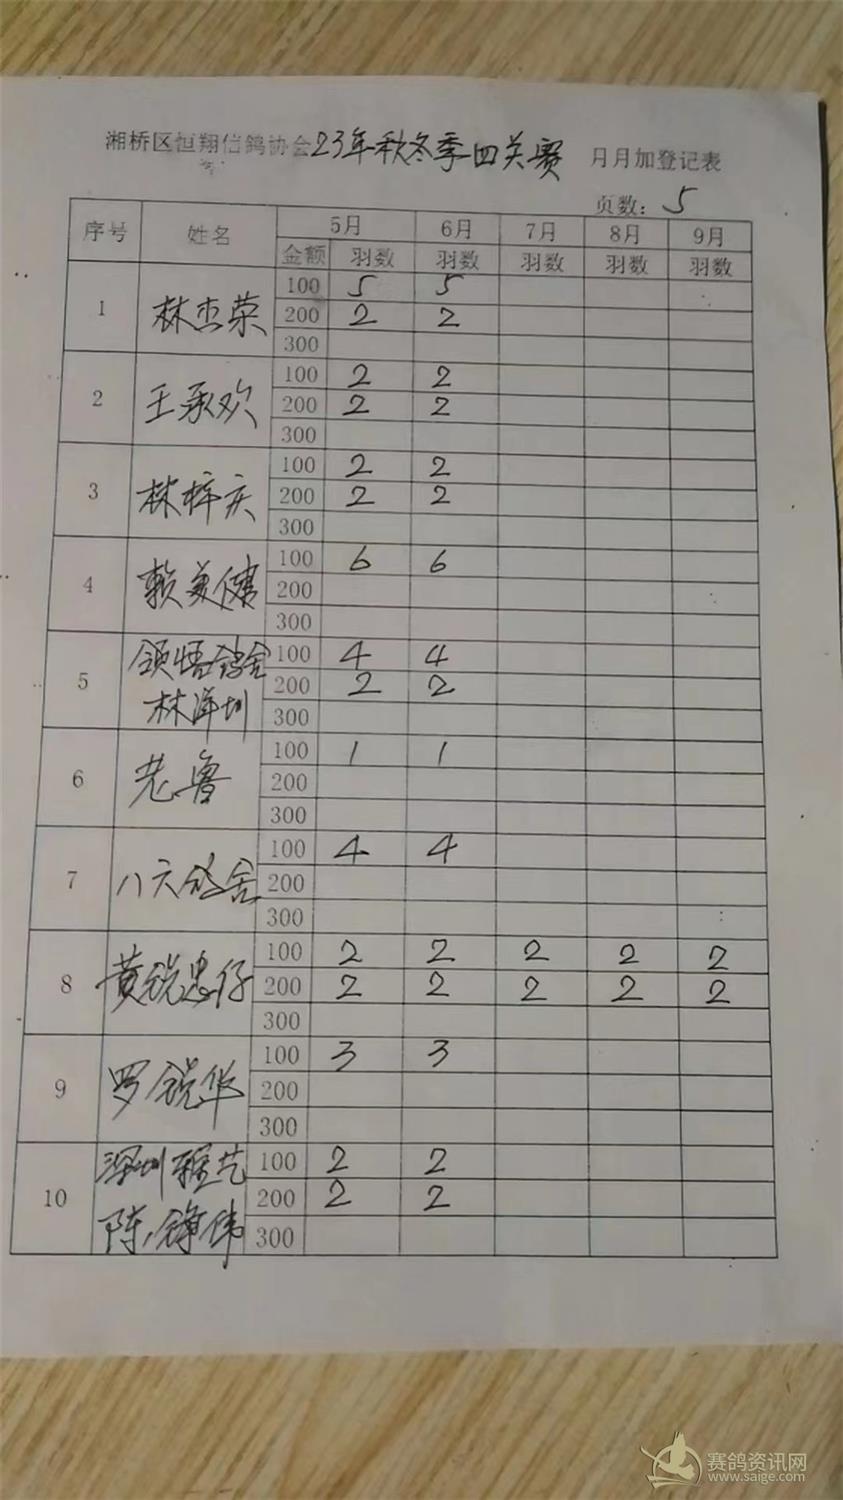 湘桥区恒翔信鸽协会23年秋冬季四关赛 月月加登记表
页数: 5
序号 姓名 5月 6月 7月 8月 9月
金额 羽数 羽数 羽数 羽数 羽数
1 林杰荣 100 5 5
200 2 2
300
2 王承欢 100 2 2
200 2 2
300
3 林梓庆 100 2 2
200 2 2
300
4 赖美健 100 6 6
200
300
5 领悟鸽舍 100 4 4
林泽圳 200 2 2
300
6 老鲁 100 1 1
200
300
7 八六鸽舍 100 4 4
200
300
8 黄锐忠仔 100 2 2 2 2 2
200 2 2 2 2 2
300
9 罗锐华 100 3 3
200
300
10 深圳 艺 100 2 2
陈 伟 200 2 2
300
赛鸽资讯网
www.saige.com